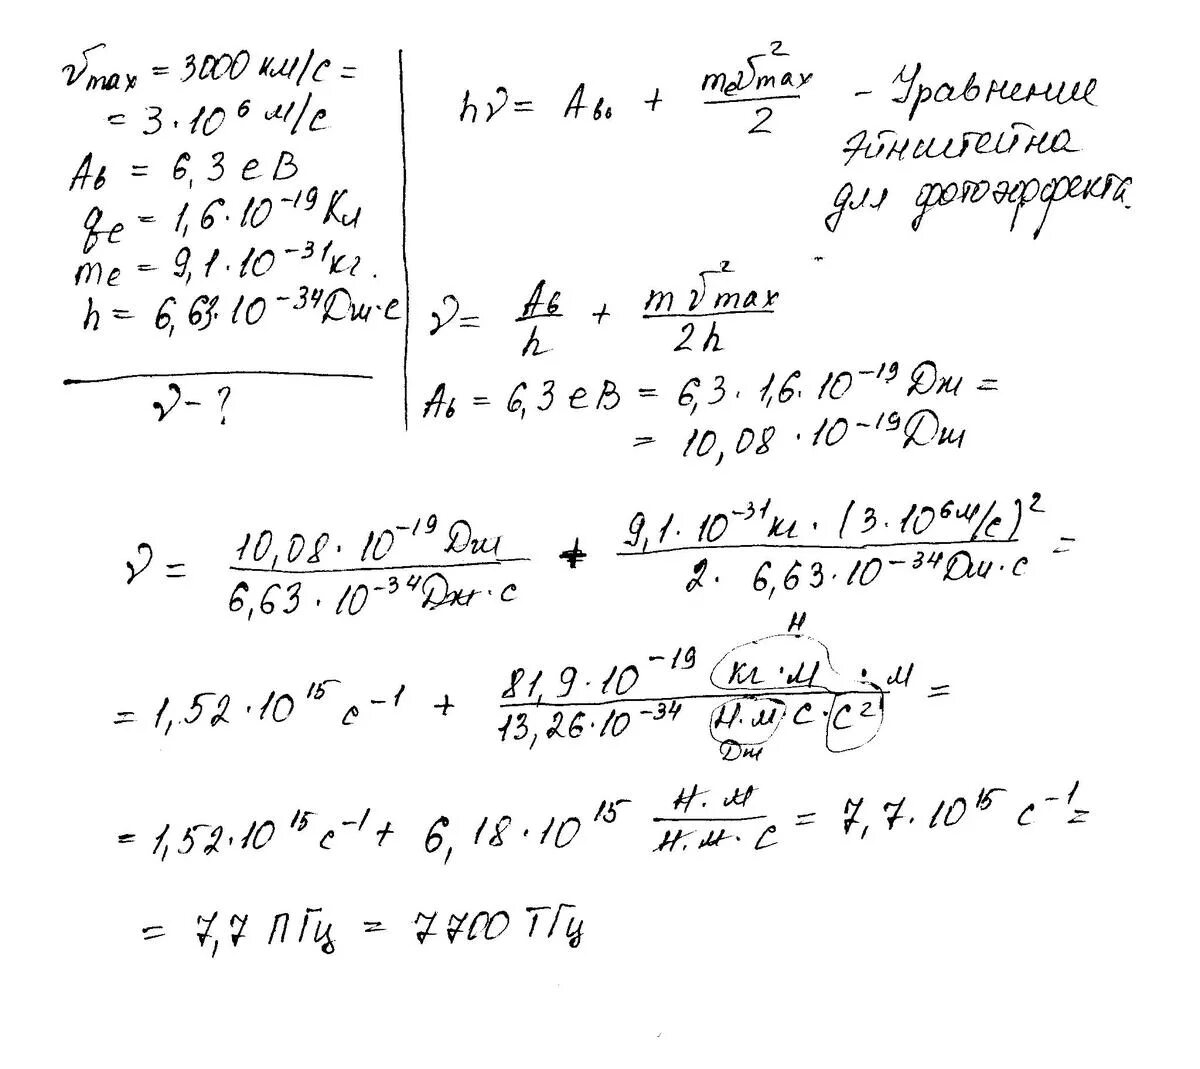 υmax = 3000 км/с =
= 3·10⁶ м/с
Aв = 6,3 eВ
qe = 1,6·10⁻¹⁹ Кл
me = 9,1·10⁻³¹ кг.
h = 6,63·10⁻³⁴ Дж·с
ν - ?
hν = Aв + meυ²max / 2 - Уравнение
Эйнштейна
для фотоэффекта.
ν = Aв / h + mυ²max / 2h
Aв = 6,3 eВ = 6,3·1,6·10⁻¹⁹ Дж =
= 10,08·10⁻¹⁹ Дж
ν = 10,08·10⁻¹⁹ Дж / 6,63·10⁻³⁴ Дж·с + 9,1·10⁻³¹ кг·(3·10⁶ м/с)² / 2·6,63·10⁻³⁴ Дж·с =
Н
= 1,52·10¹⁵ с⁻¹ + 81,9·10⁻¹⁹ кг·м·м / 13,26·10⁻³⁴ Н·м с·с² =
Дж
= 1,52·10¹⁵ с⁻¹ + 6,18·10¹⁵ Н·м / Н·м·с = 7,7·10¹⁵ с⁻¹ =
= 7,7 ПГц = 7700 ТГц